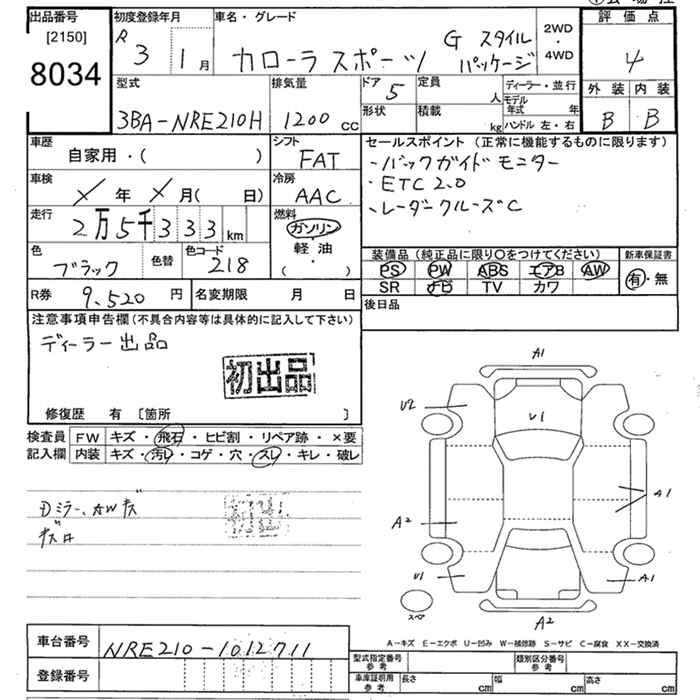 出品番号
[2150]
8034
初度登録年月
R 3年 1月
車名・グレード
カローラスポーツ G スタイルパッケージ
2WD・4WD
評価点
4
外装 内装
B B
型式
3BA-NRE210H
排気量
1200 cc
ドア 5
定員 人
形状
積載 kg
ディーラー・並行
モデル年式 年
ハンドル 左・右
車歴
自家用・( )
シフト
FAT
セールスポイント (正常に機能するものに限ります)
・バックガイドモニター
・ETC 2.0
・レーダークルーズC
車検
X 年 X 月( 日)
冷房
AAC
走行
2万5千333 km
燃料
ガソリン
軽油
( ・ )
色
ブラック
色替
色コード
218
装備品 (純正品に限り○をつけてください)
PS PW ABS エアB AW
SR ナビ TV カワ
新車保証書
有・無
R券 9,520 円
名変期限 月 日
後日品
注意事項申告欄 (不具合内容等は具体的に記入して下さい)
ディーラー出品
初出品
修復歴 有 [箇所 ]
検査員記入欄
FW キズ・飛石・ヒビ割・リペア跡・×要
内装 キズ・汚レ・コゲ・穴・スレ・キレ・破レ
ミラー、AWキズ
初出品
A1
U2
U1
A2
A1
U1
A1
スペア
A2
A-キズ E-エクボ U-凹み W-補修跡 S-サビ C-腐食 XX-交換済
車台番号
NRE210-1012711
登録番号
型式指定番号 参考
類別区分番号 参考
車庫証明用 参考
長さ cm
幅 cm
高さ cm